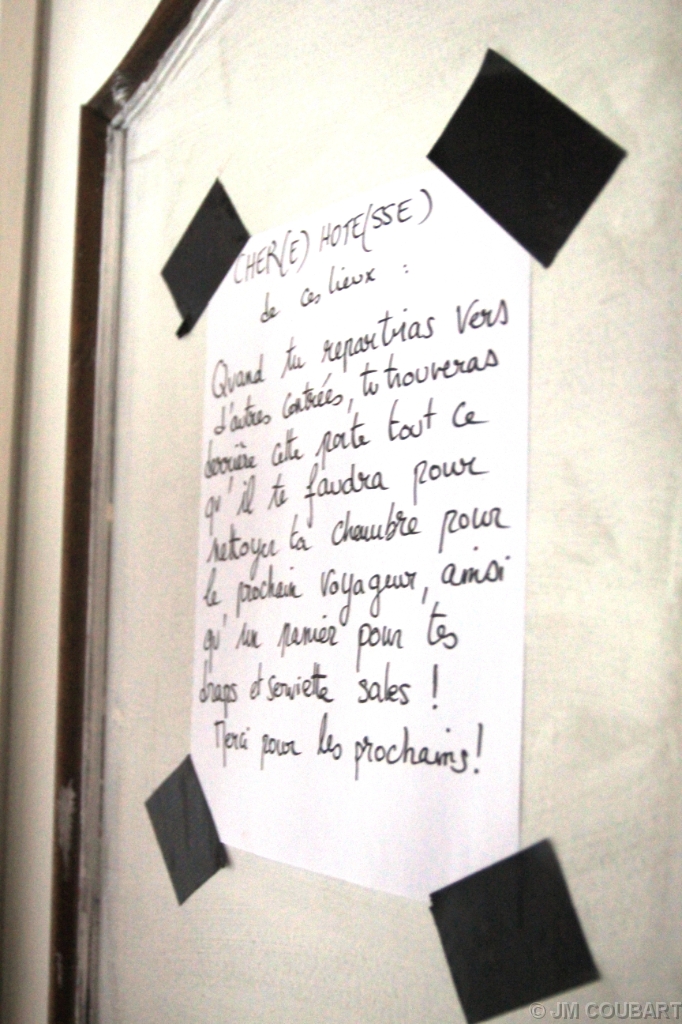 CHER(E) HOTE(SSE)
de ces lieux :
Quand tu repartiras vers
d'autres contrées, tu trouveras
derrière cette porte tout ce
qu'il te faudra pour
nettoyer ta chambre pour
le prochain voyageur, ainsi
qu'un panier pour tes
draps et serviette sales !
Merci pour les prochains !
© JM COUBART